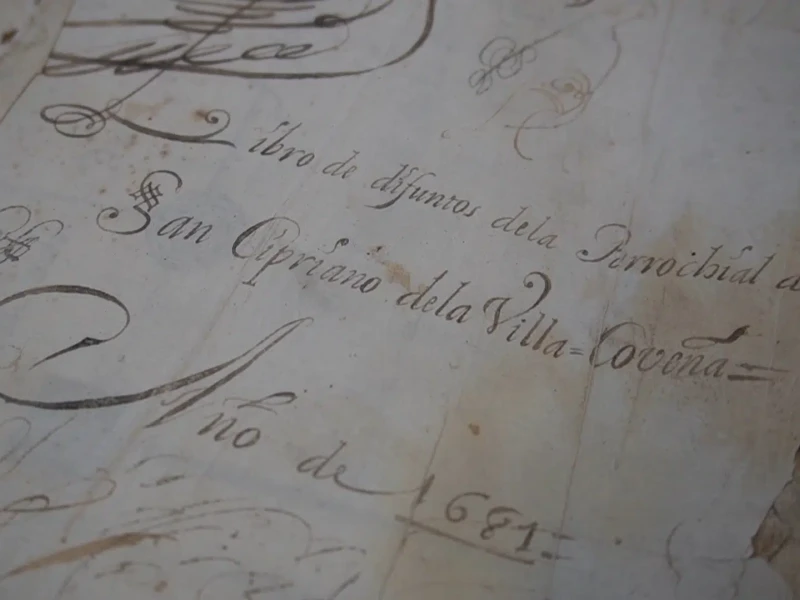 Libro de difuntos dela Perrochial d
San Cipriano dela Villa=Coveña=
Año de 1681=